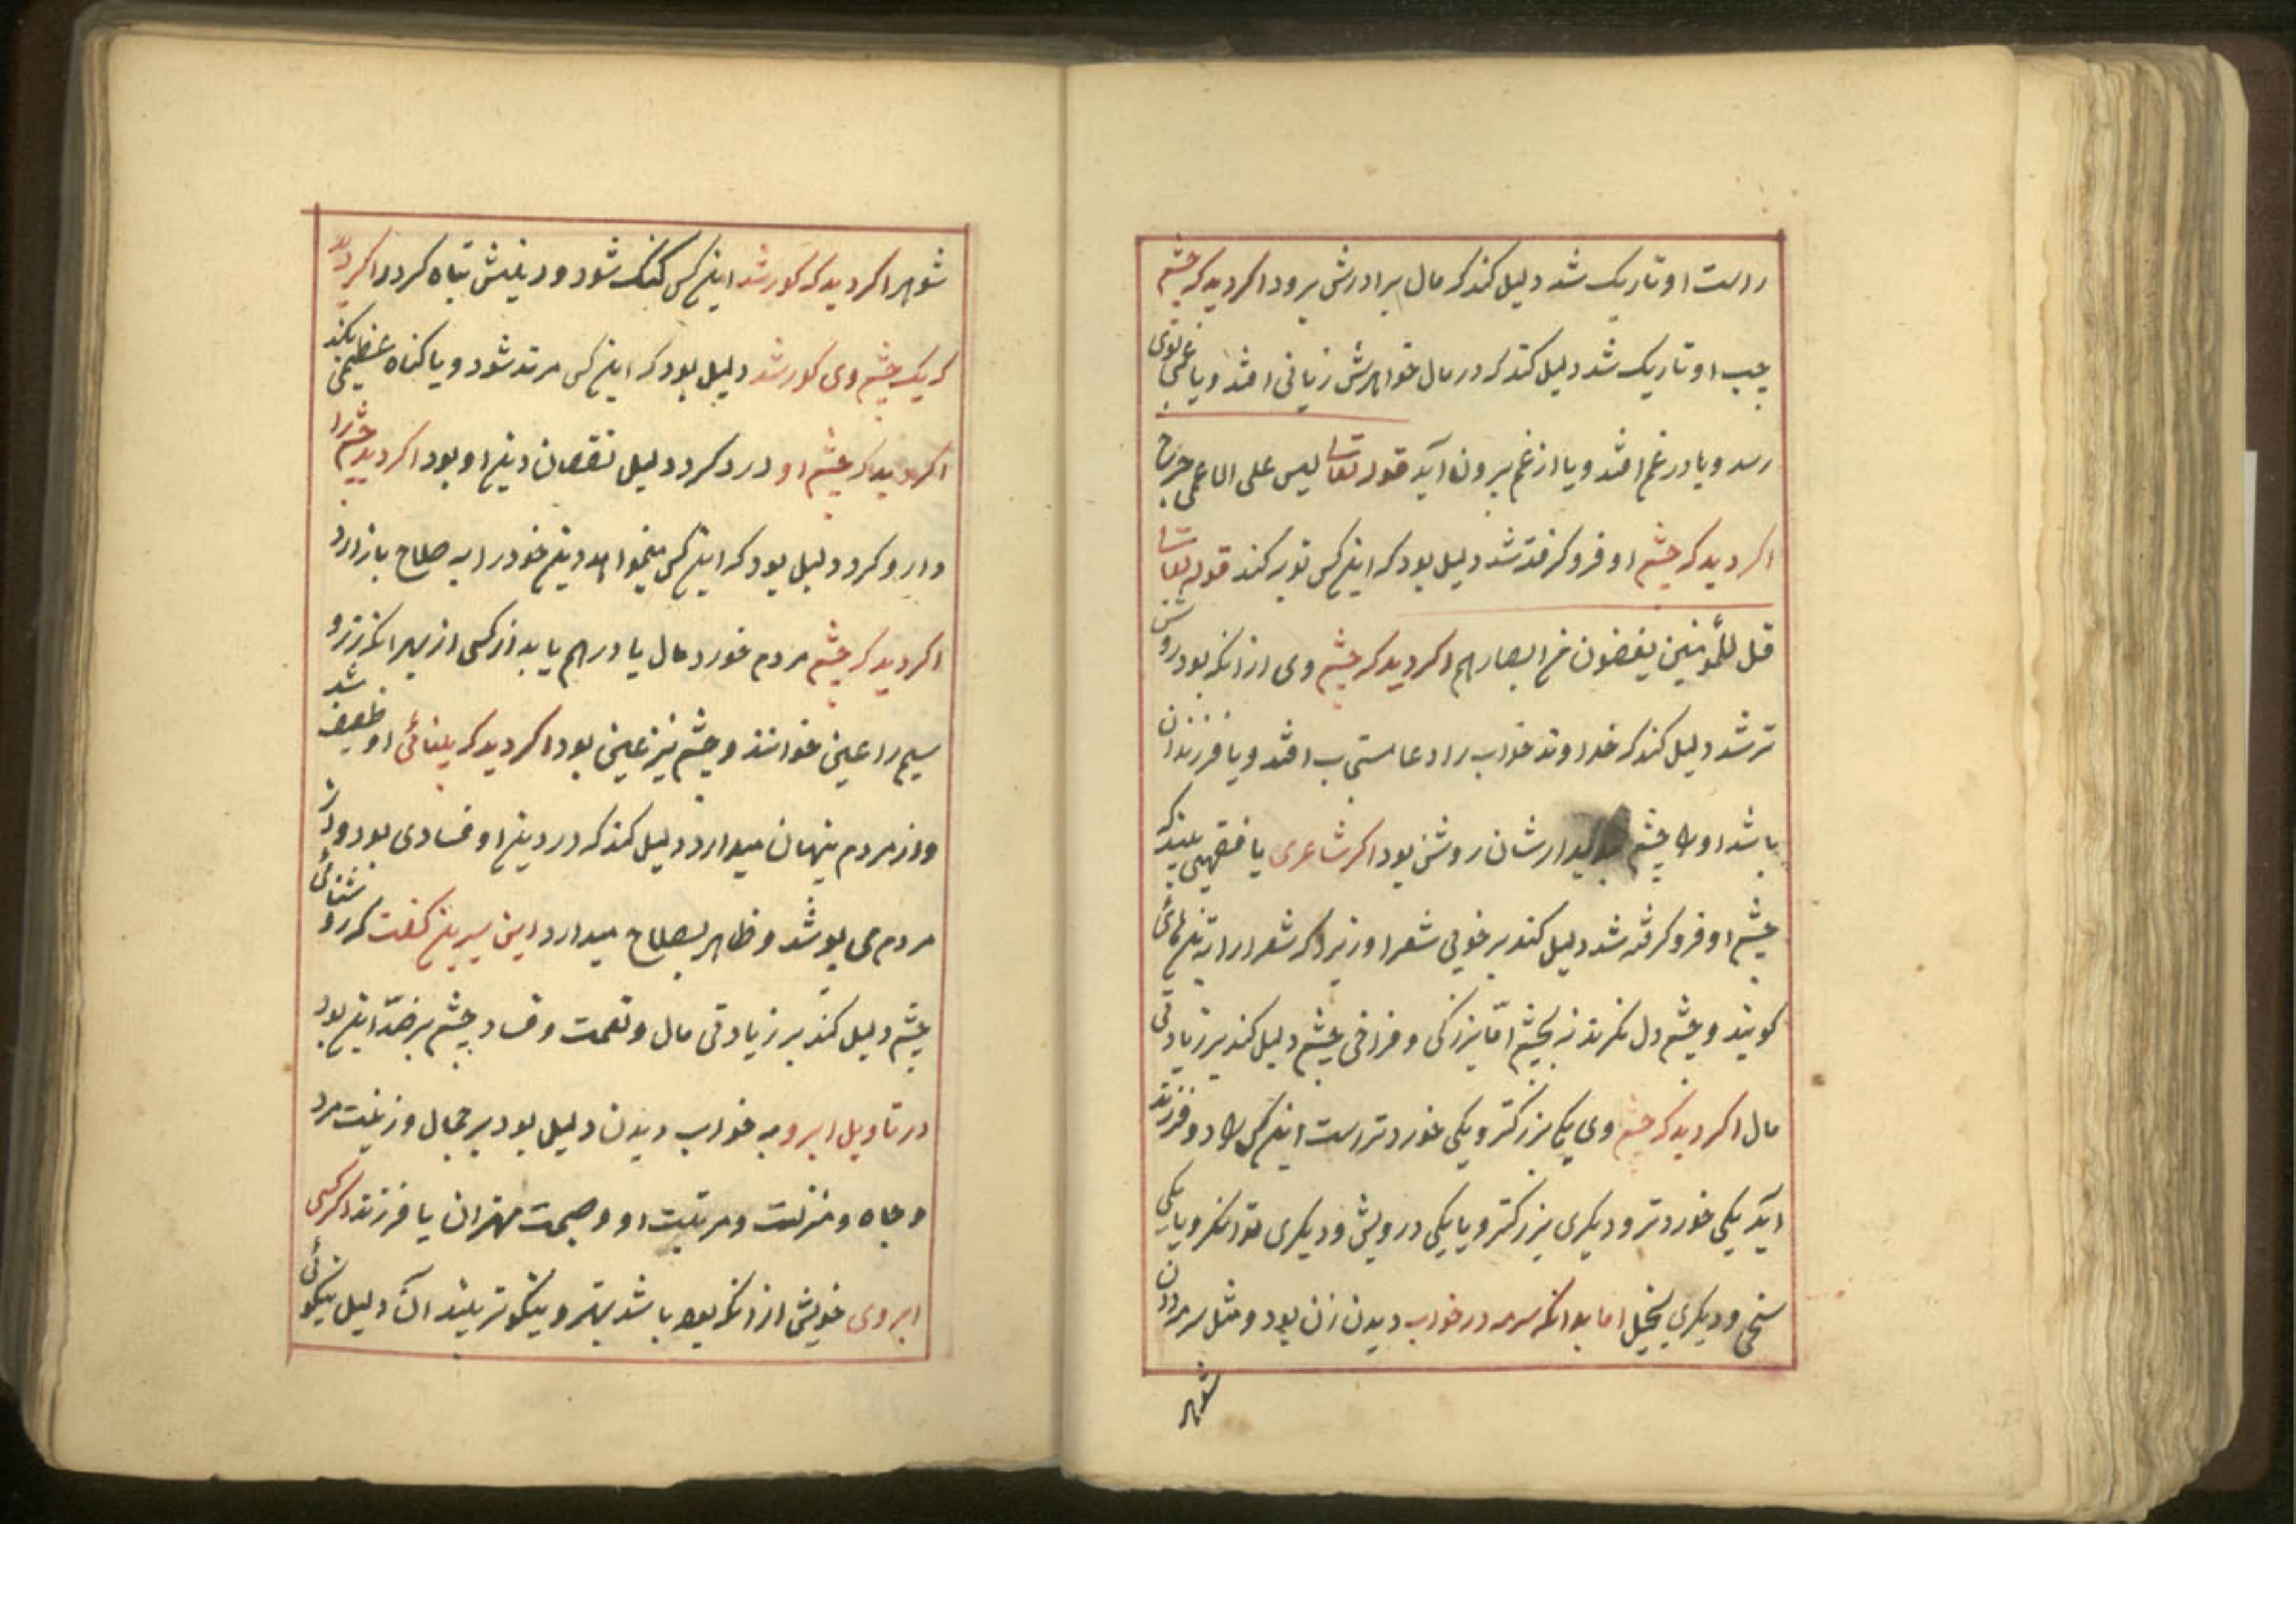 راست او تاریک شد دلیل کند که مال برادرش برود اکر دید که چشم
چپ او تاریک شد دلیل کند که در مال خواهرش زیانی افتد و یا غمی بوی
رسد و یا در غم افتد و یا از غم بیرون آید قوله تعالی لیس علی الاعمی حرج
اکر دید که چشم او فرو کرفته شد دلیل بود که این کس توبه کند قوله تعالی
قل للمؤمنین یغضون من ابصارهم اکر دید که چشم وی از انکه بود روشن
تر شد دلیل کند که خداوند خواب را دعا مستجاب افتد و یا فرزندان
باشد او را چشم دیدارشان روشن بود اکر شاعری یا فقیهی بیند که
چشم او فرو کرفته شد دلیل کند بر خوبی شعر او زیرا که شعرا را
کویند و چشم دل نکرند نه بچشم امّا بزرکی و فراخی چشم دلیل کند بر زیادتی
مال اکر دید که چشم وی یکی بزرکتر و یکی خوردتر است این کس را دو فرزند
آید یکی خوردتر و دیکری بزرکتر و یا یکی درویش و دیکری توانکر و یا یکی
سخی و دیکری بخیل اما بدانکه سرمه در خواب دیدن زن بود و مثل سرمه دان
شوهر
شوهر اکر دید که کور شد این کس کنک شود و دینش تباه کردد اکر دید
که یک چشم وی کور شد دلیل بود که این کس مرتد شود و یا کناه عظیمی بکند
اکر دید که چشم او درد کرد دلیل نقصان دین او بود اکر دید چشم را
دارو کرد دلیل بود که این کس میخواهد دین خود را به صلاح باز آرد
اکر دید که چشم مردم خورد مال یا درهم یابد از کسی از بهر انکه زر و
سیم را عین خوانند و چشم نیز عین بود اکر دید که بینائی او ضعیف شد
و از مردم پنهان میدارد دلیل کند که در دین او فسادی بود و از
مردم می پوشد و ظاهر بصلاح میدارد ابن سیرین کفت که روشنائی
چشم دلیل کند بر زیادتی مال و نعمت و فساد چشم بر ضدّ این بود
در تاویل ابرو به خواب دیدن دلیل بود بر جمال و زینت مرد
و جاه و منزلت و مرتبت او و صحبت مهتران یا فرزند اکر کسی
ابروی خویش از انکه بود باشد بهتر و نیکوتر بیند آن دلیل نیکوئی